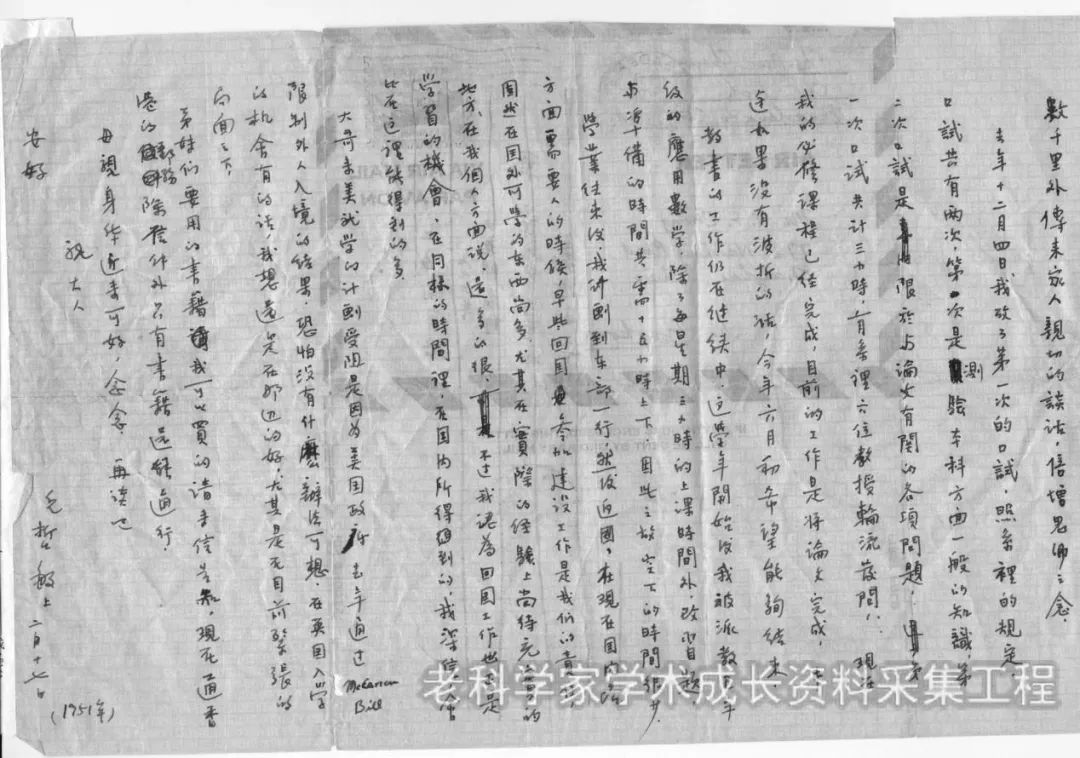 數千里外傳来家人親切的談話，倍增思鄉之念。
去年十二月四日我攷了第一次的口試，照系裡的規定，
口試共有两次，第一次是測驗本科方面一般的知識，第
二次口試是限於与論文有関的各項問題，第
一次口試共計三小時，由系裡六位教授輪流發問，現在
我的必修課程已經完成，目前的工作是将論文完成，
途如果没有波折的話，今年六月初希望能夠结束。
教書的工作仍在继续中，這學年開始後我被派教
级的應用數學，除了每星期三小時的上課時間外，改習題
与準备的時間共需十五小時上下，因此之故空下的時間很少
學業结束後，我计劃到东部一行，然後返國，在現在国内
方面需要人的時候，早些回国参加建设工作是我们的責
固然在国外可學的东西尚多，尤其在實際的经驗上尚待充實的
地方，在我個人方面說，還多的很，不过我認為回国工作也是
學習的機會，在同樣的時間裡，在国内所得到的，我深信會
比在這裡能得到的多
大哥来美就學的计劃受阻是因為美国政府去年通过McCarran Bill
限制外人入境的结果，恐怕没有什麽辦法可想，在英国入学
的机會有的話，我想還是在那边的好，尤其是在目前緊張的
局面之下
弟妹们要用的書籍我可以買的請来信告知，現在通香
港的郵務除信件外只有書籍還能通行，
母親身体近来可好，念念，再談叩
安好
親大人
毛哲敏上 二月十七日
(1951年)
老科学家学术成长资料采集工程